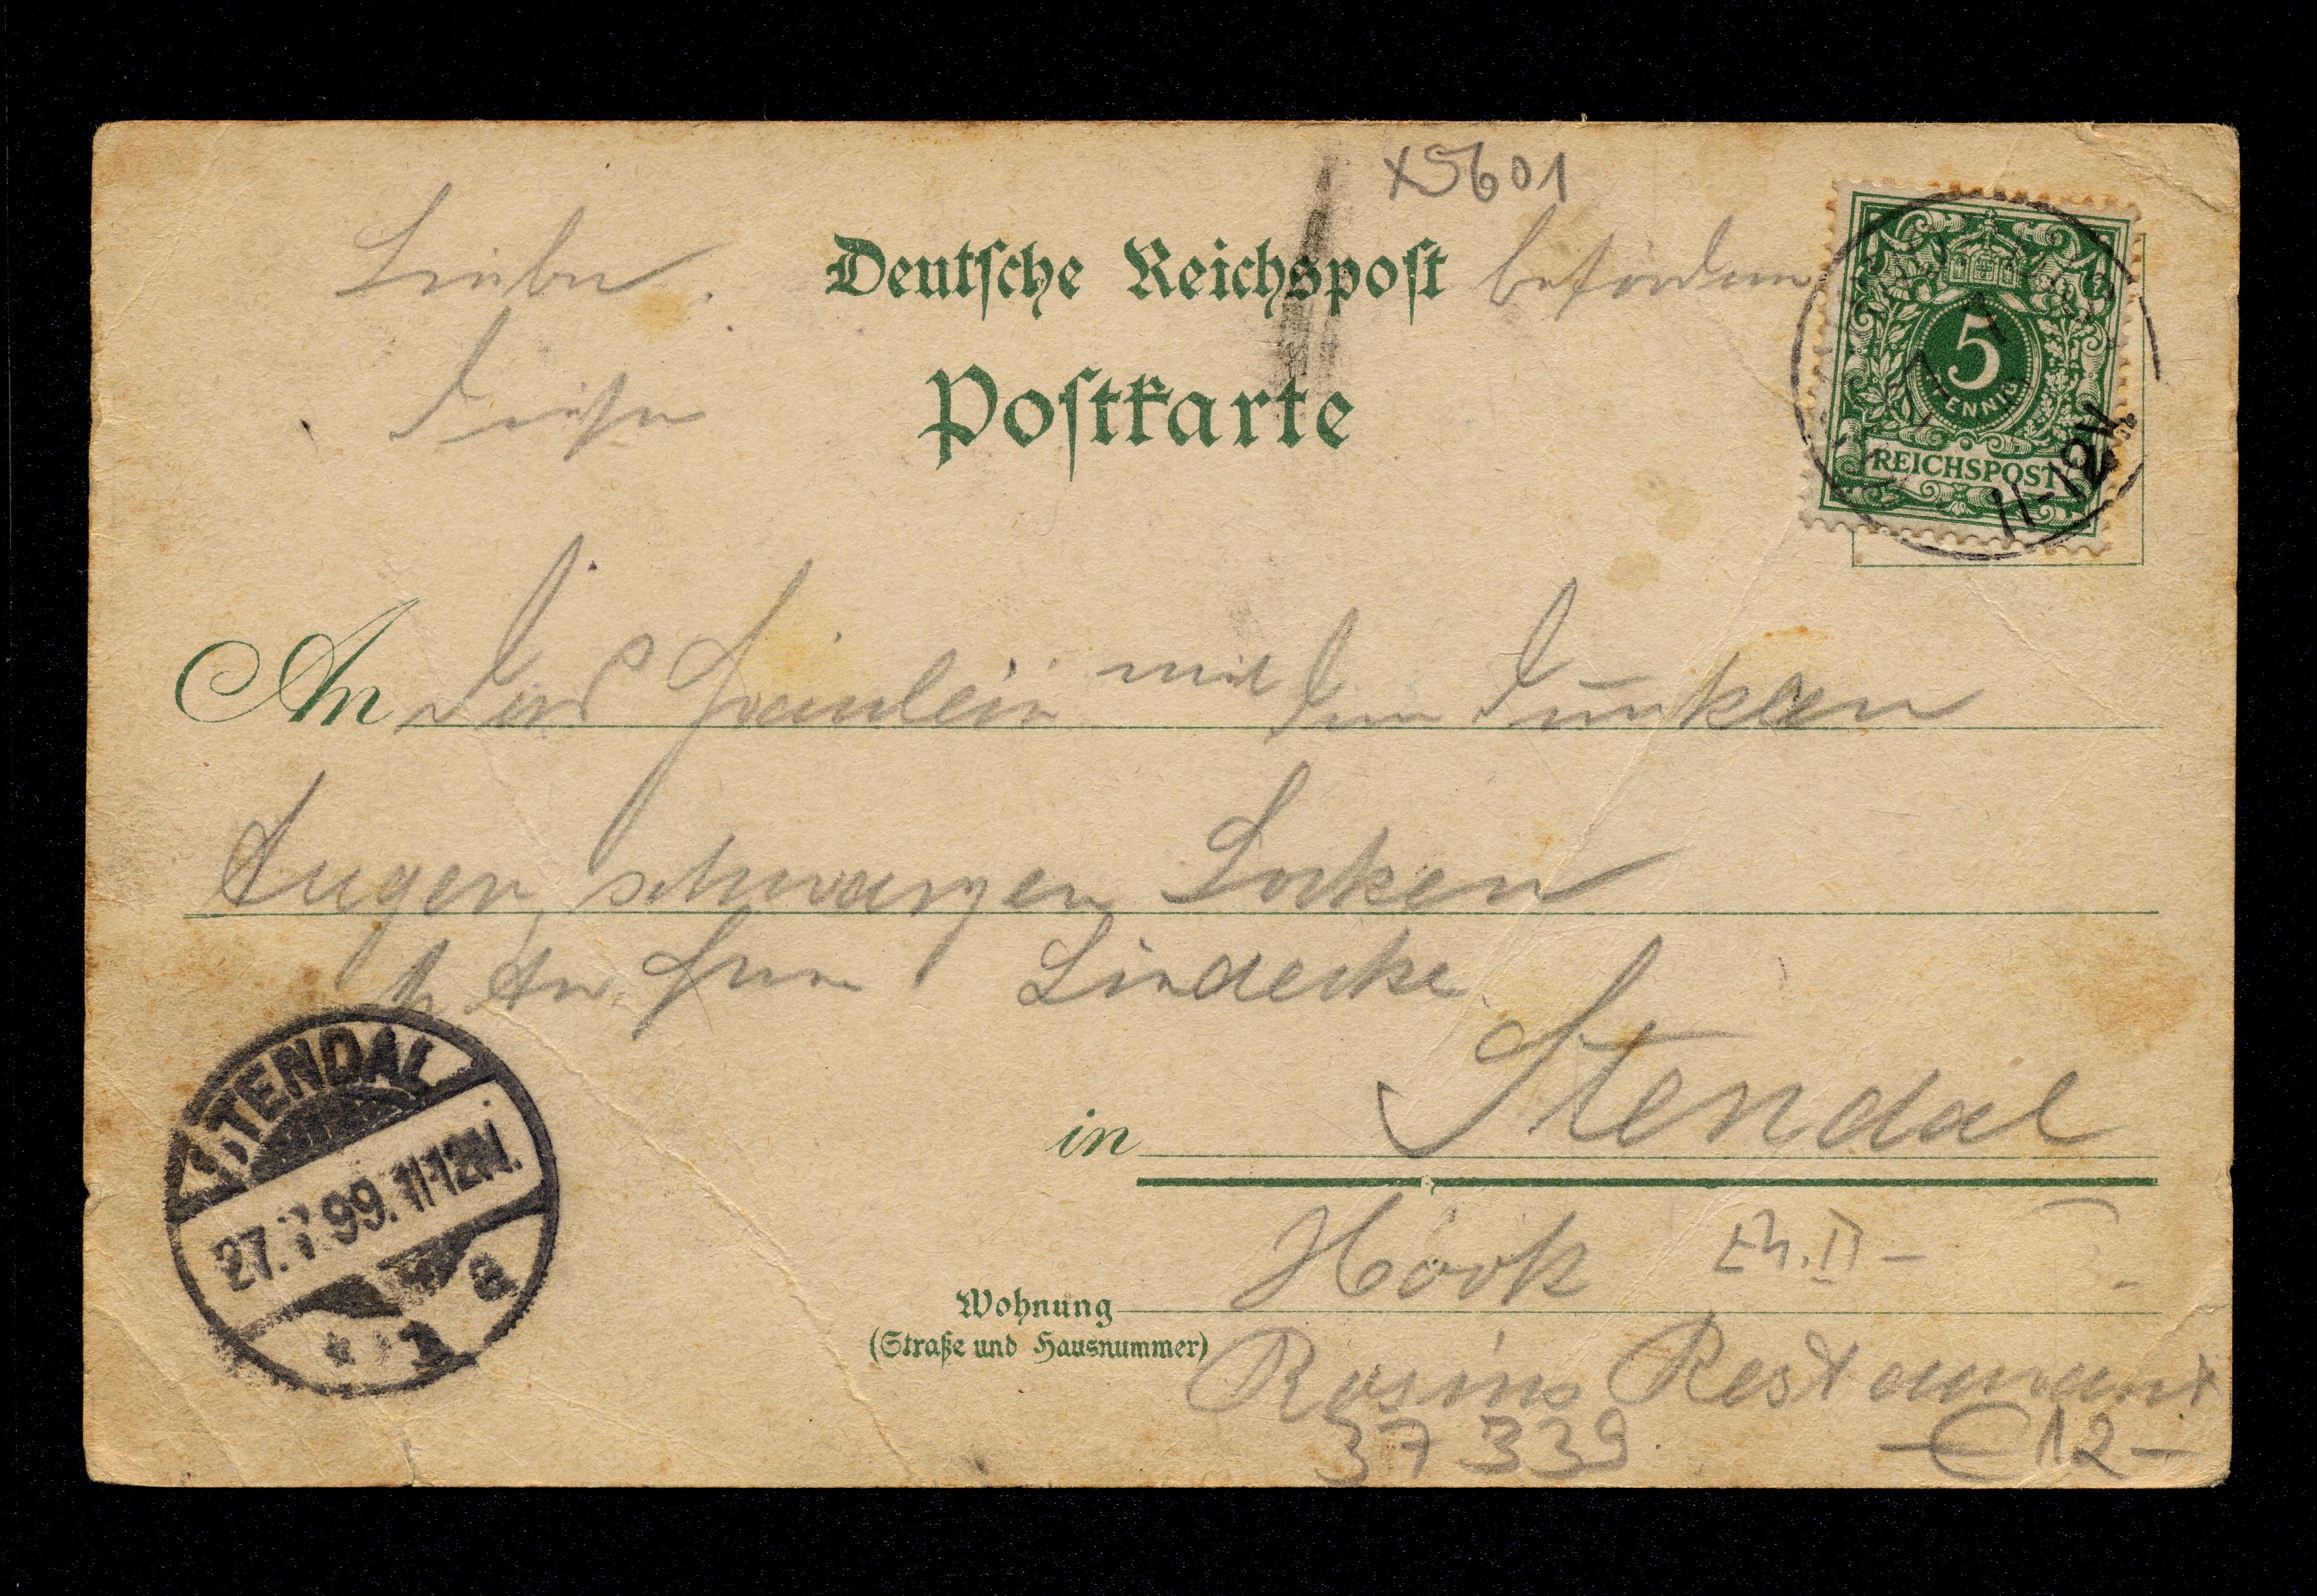 x5601
Liebe Deutsche Reichspost befördern
diese Postkarte
5
PFENNIG
REICHSPOST
11-12V.
An Das Fräulein mit den dunklen
Augen, schwarzen Locken
Lindecke
in Stendal
STENDAL
27.7.99.11-12N.
a
* 1
Hook
Wohnung
(Straße und Hausnummer)
Rosins Restaurant
37 339 €12-